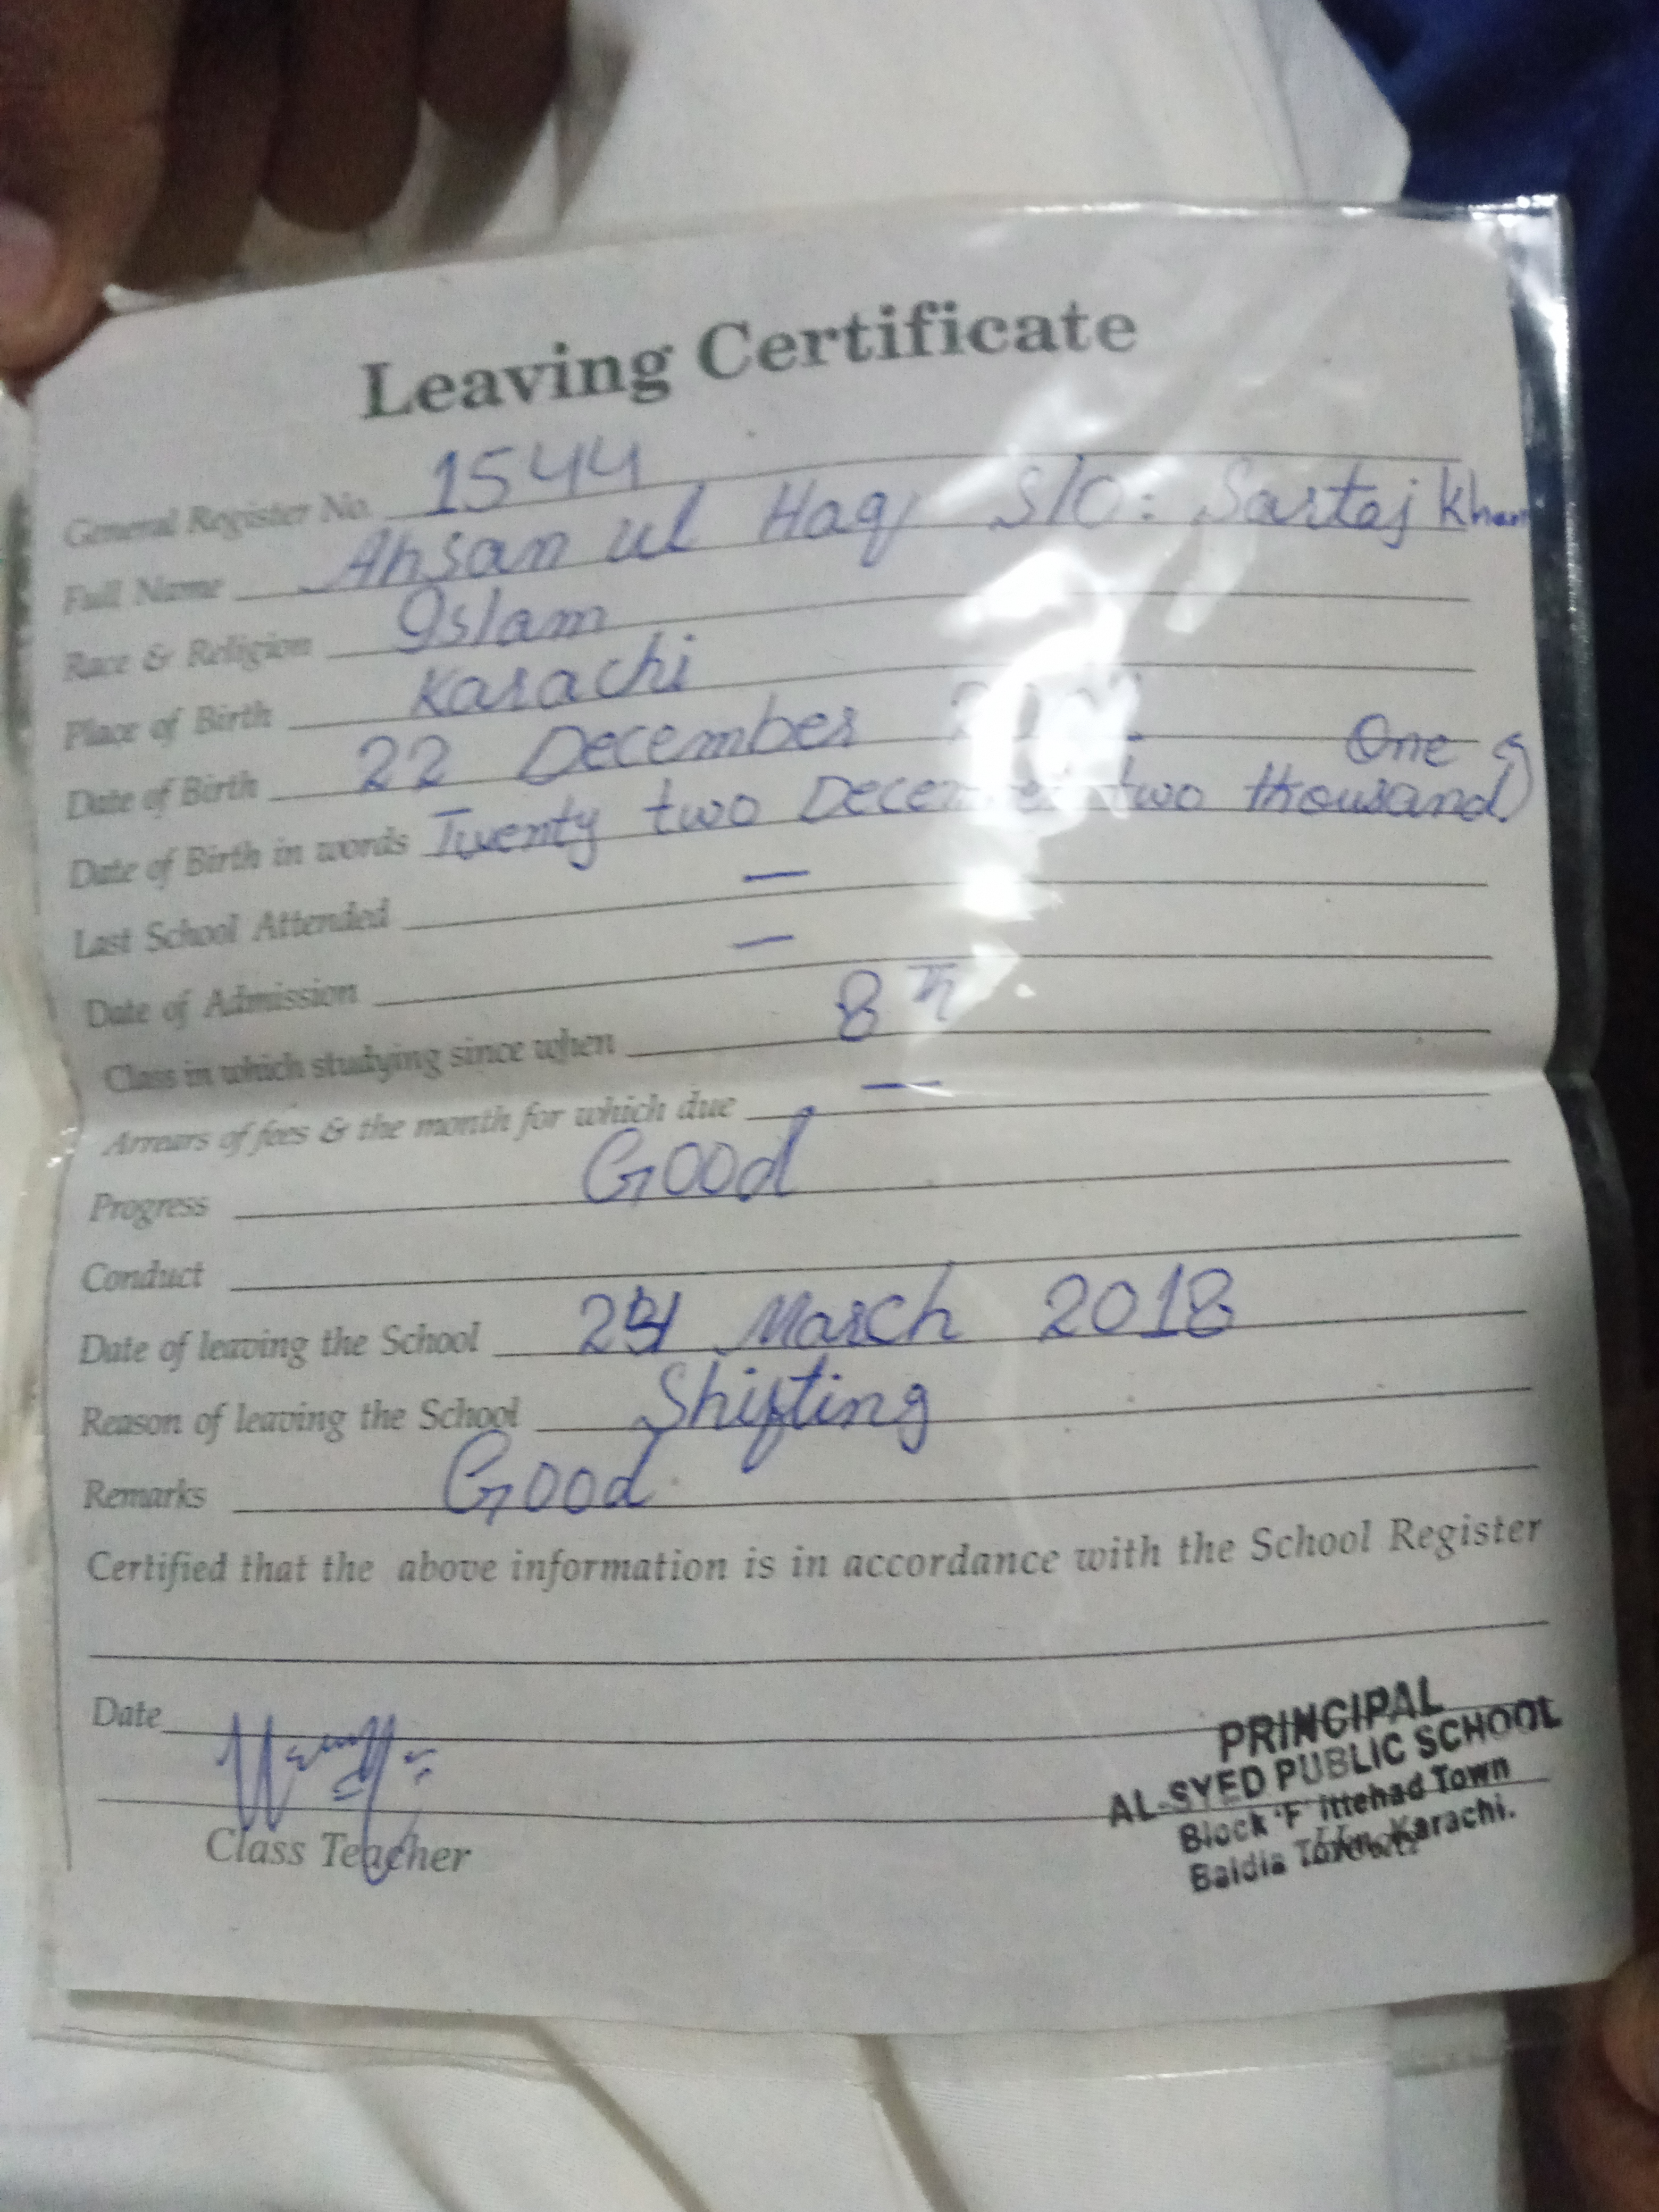 Leaving Certificate
General Register No. 1544
Full Name Ahsan ul Haq S/O: Sartaj Khan
Race & Religion Islam
Place of Birth Karachi
Date of Birth 22 December
One
Date of Birth in words Twenty two December two thousand
Last School Attended —
Date of Admission —
Class in which studying since when 8th
Arrears of fees & the month for which due —
Progress Good
Conduct
Date of leaving the School March 2018
Reason of leaving the School Shifting
Remarks Good
Certified that the above information is in accordance with the School Register
Date
PRINCIPAL
AL-SYED PUBLIC SCHOOL
Block 'F' Ittehad Town
Baldia Town, Karachi.
Class Teacher